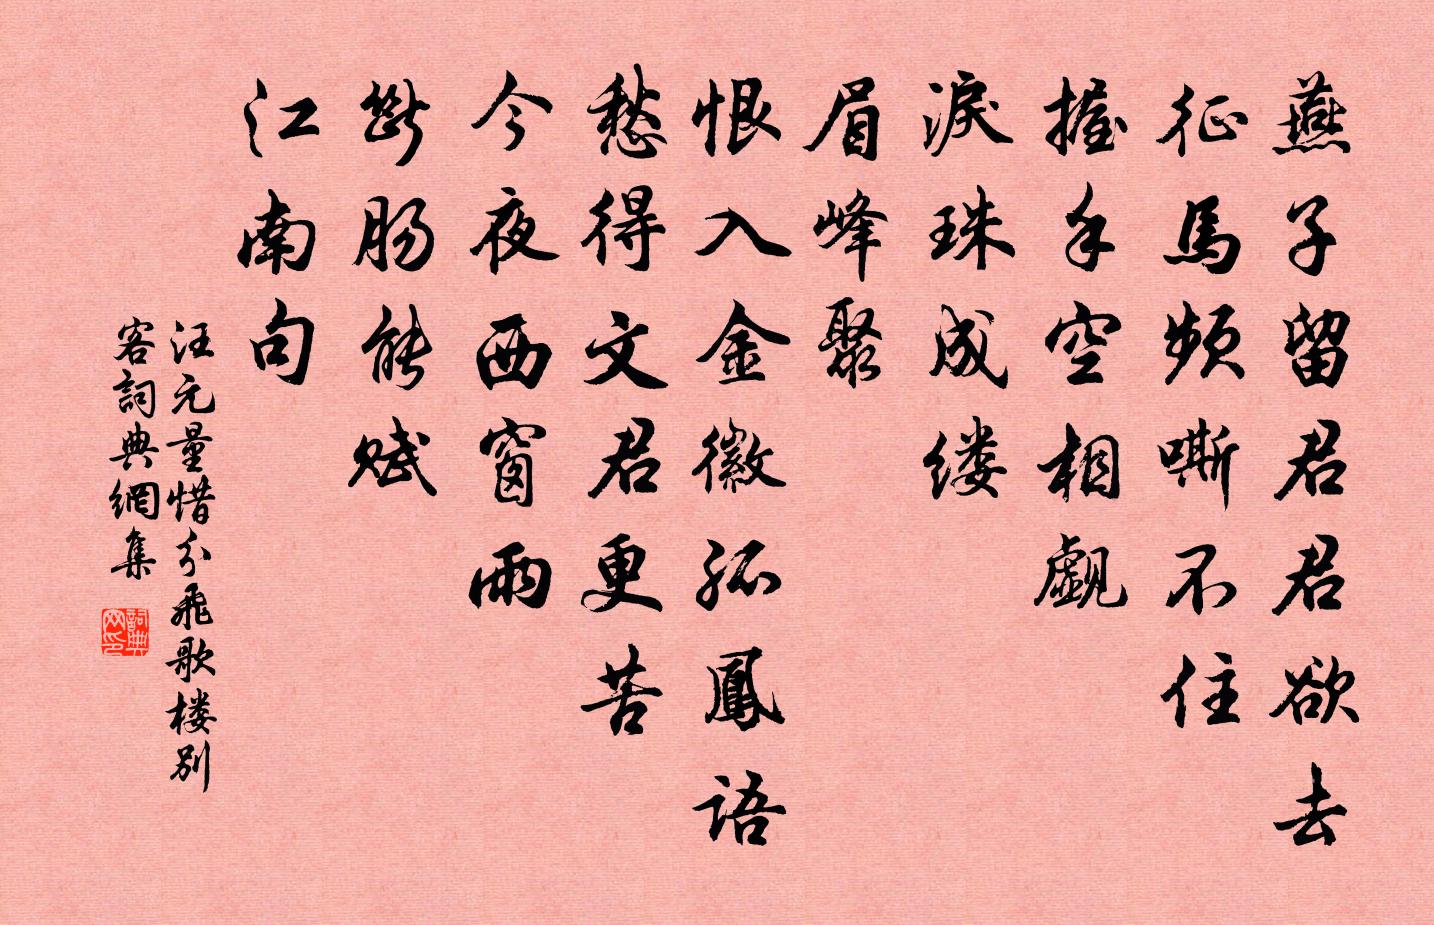 燕子留君君欲去
征馬頻嘶不住
握手空相觑
淚珠成缕
眉峰聚
恨入金徽孤鳳語
愁得文君更苦
今夜西窗雨
斷肠能赋
江南句
汪元量惜分飛歌楼别
客詞典網集
詞典网印